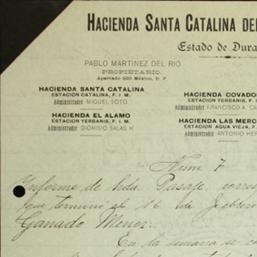 HACIENDA SANTA CATALINA DEL
Estado de Dura
PABLO MARTINEZ DEL RIO
PROPIETARIO.
Apartado 250 México, D. F
HACIENDA SANTA CATALINA
ESTACION CATALINA, F. I M.
Administrador MIGUEL SOTO
HACIENDA COVADO
ESTACION YERBANIS, F.
Administrador FRANCISCO A. C
HACIENDA EL ALAMO
ESTACION YERBANIS, F. I M.
Administrador DIONISIO SALAS H
HACIENDA LAS MERC
ESTACION AGUA VIEJA, F
Administrador ANTONIO HER
Núm 7
Informe de Hda Pasaje, corres
que terminó el 16 de Febrer
Ganado Menor.
En la semana se